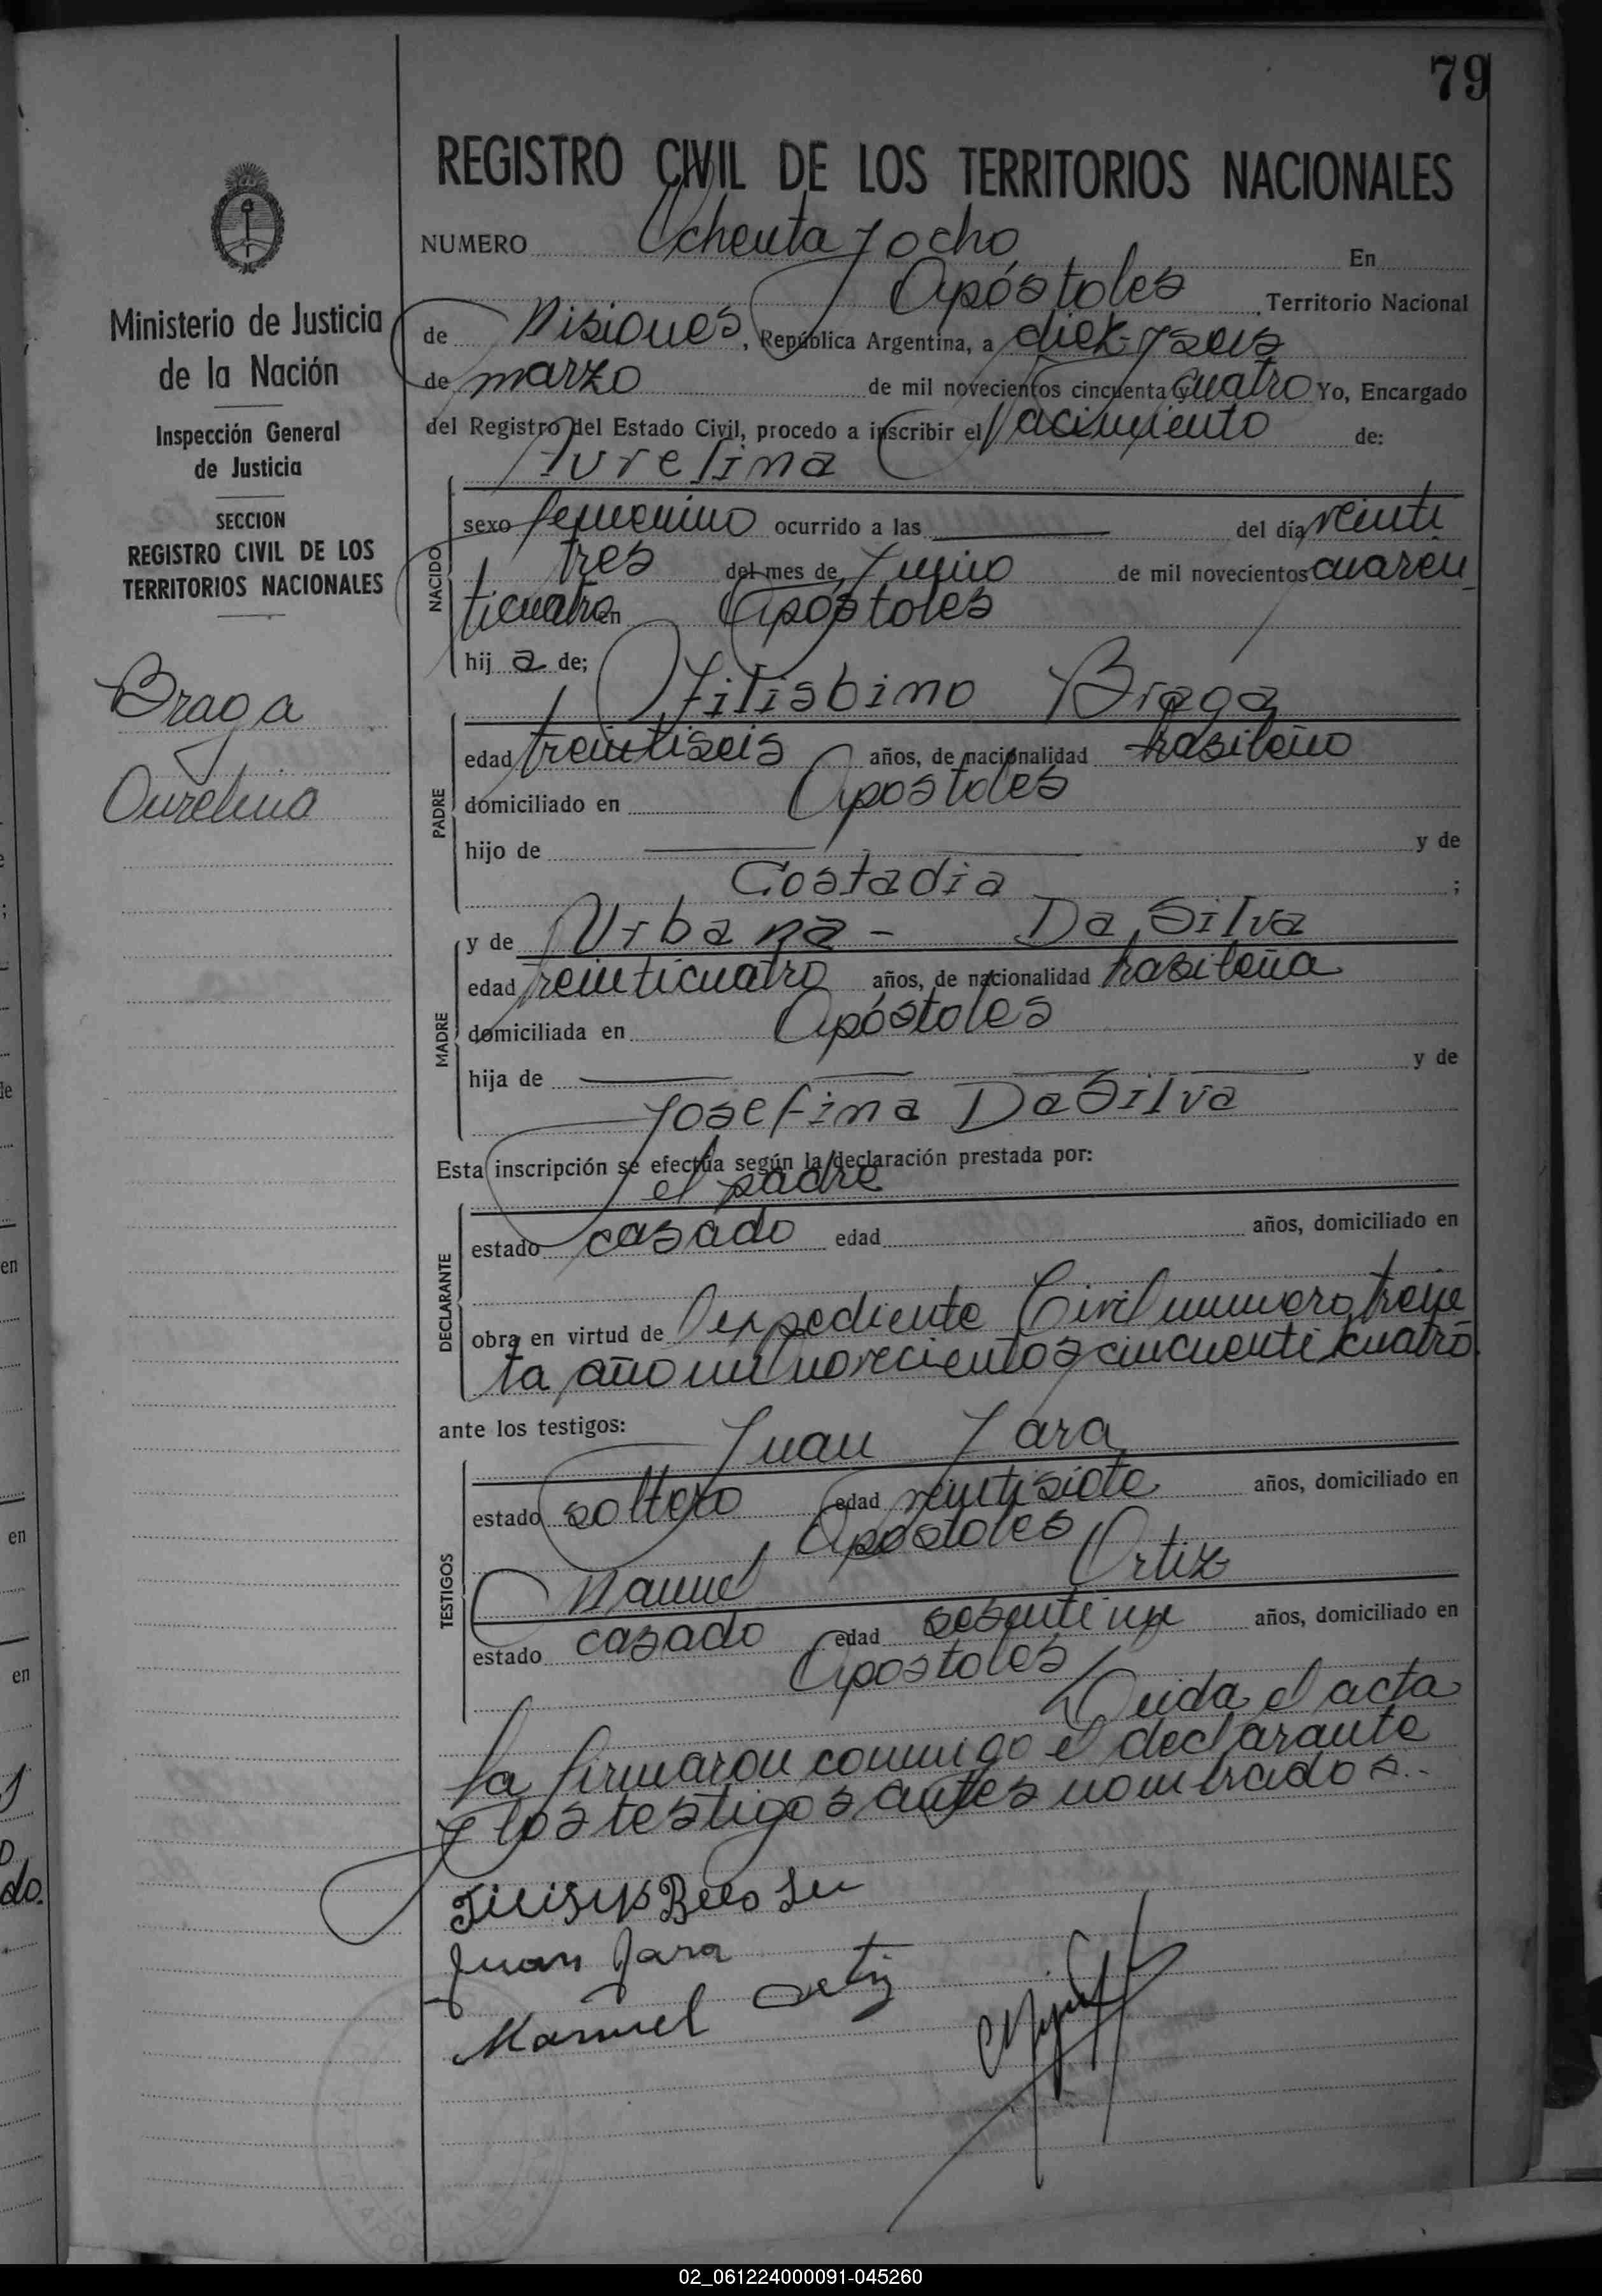 79
REGISTRO CIVIL DE LOS TERRITORIOS NACIONALES
NUMERO Ochenta y ocho En
Apóstoles, Territorio Nacional
de Misiones, República Argentina, a diez y seis
de marzo de mil novecientos cincuenta y cuatro Yo, Encargado
del Registro del Estado Civil, procedo a inscribir el Nacimiento de:
Aurelina
NACIDO
sexo femenino ocurrido a las del día veinti
tres del mes de Junio de mil novecientos cuaren
ticuatro en Apóstoles
hij a de;
Filisbino Braga
PADRE
edad treintiseis años, de nacionalidad brasileño
domiciliado en Apostoles
hijo de y de
Costadia ;
MADRE
y de Urbana - Da Silva
edad veinticuatro años, de nacionalidad brasileña
domiciliada en Apóstoles
hija de y de
Josefina Da Silva
Esta inscripción se efectúa según la declaración prestada por:
el padre
DECLARANTE
estado casado edad años, domiciliado en
obra en virtud de expediente Civil numero trein
ta año mil novecientos cincuenti cuatro
ante los testigos:
Juan Jara
TESTIGOS
estado soltero edad veintisiete años, domiciliado en
Apóstoles
Manuel Ortiz
estado casado edad sesentiun años, domiciliado en
Apostoles
Leida el acta
la firmaron conmigo el declarante
y los testigos antes nombrados..
Juan Jara
Manuel Ortiz
Ministerio de Justicia
de la Nación
Inspección General
de Justicia
SECCION
REGISTRO CIVIL DE LOS
TERRITORIOS NACIONALES
Braga
Aurelina
de
en
en
en
do.
02_061224000091-045260